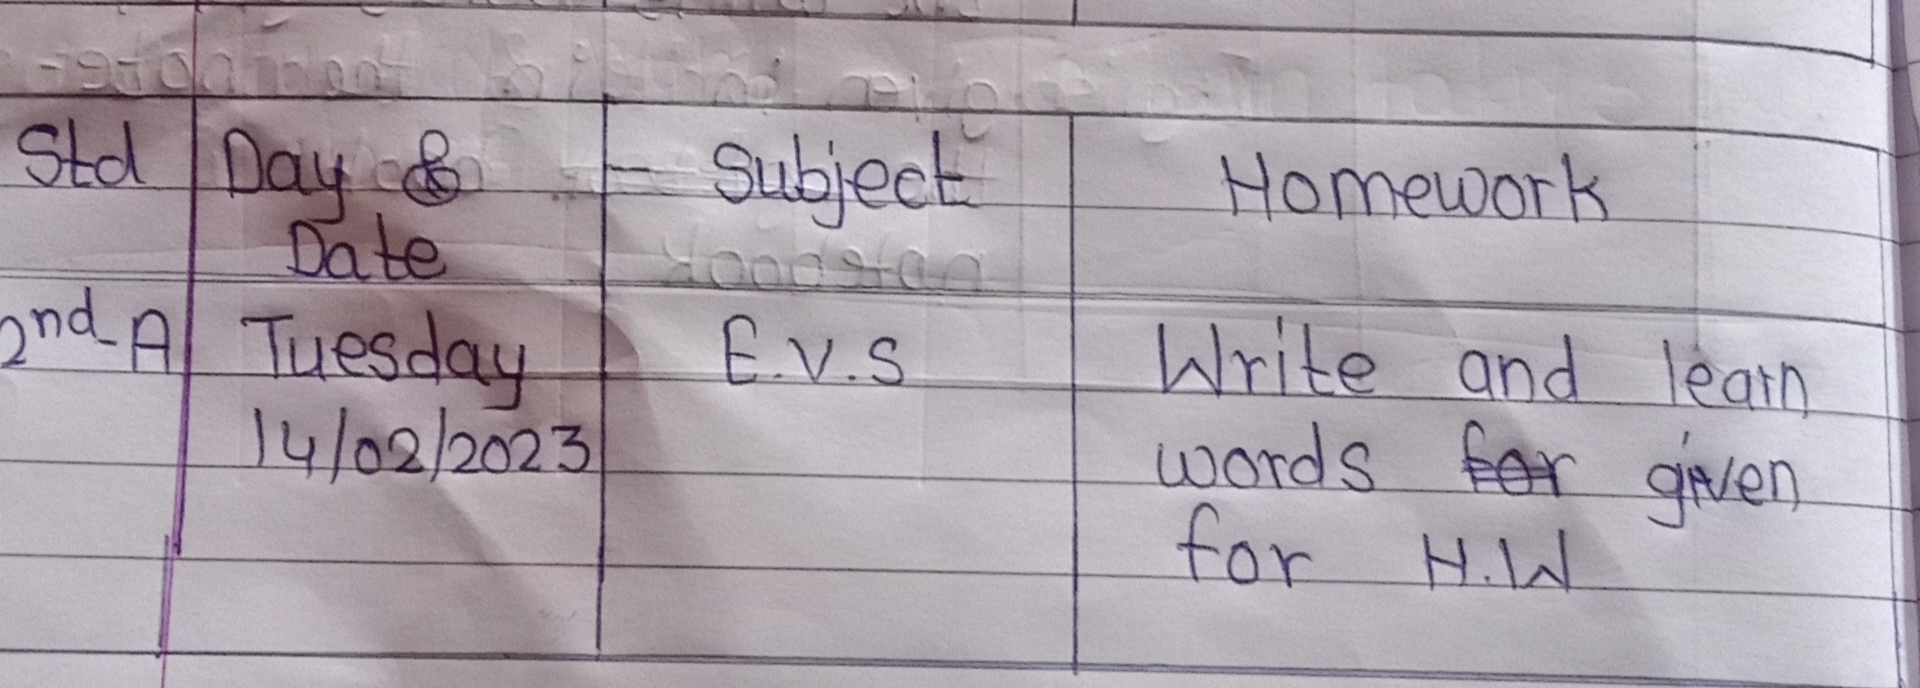 Std Day & Subject Homework
Date
2nd-A Tuesday E.V.S Write and learn
14/02/2023 words for given
for H.W